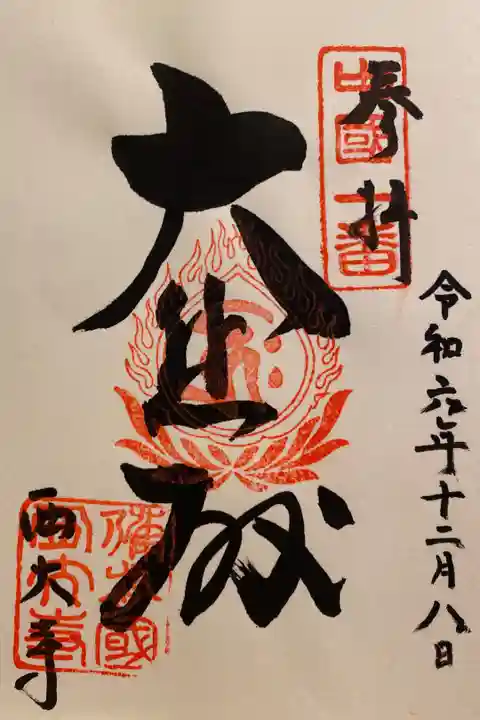 令和六年十二月八日
奉拝
中國一番
大悲殿
西大寺
備前國
西大寺